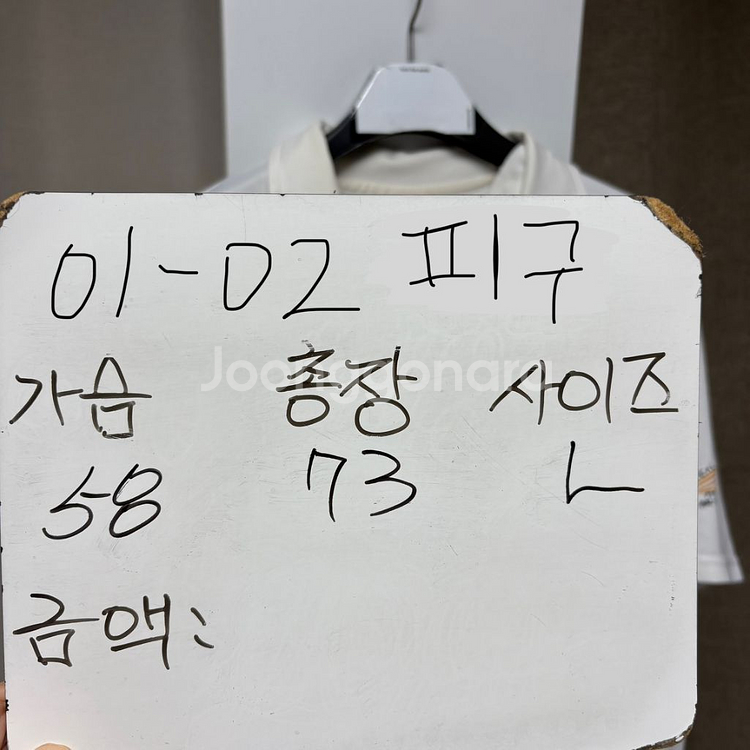 01-02 피구
가슴 총장 사이즈
Joonggonara
58 73 L
금액: